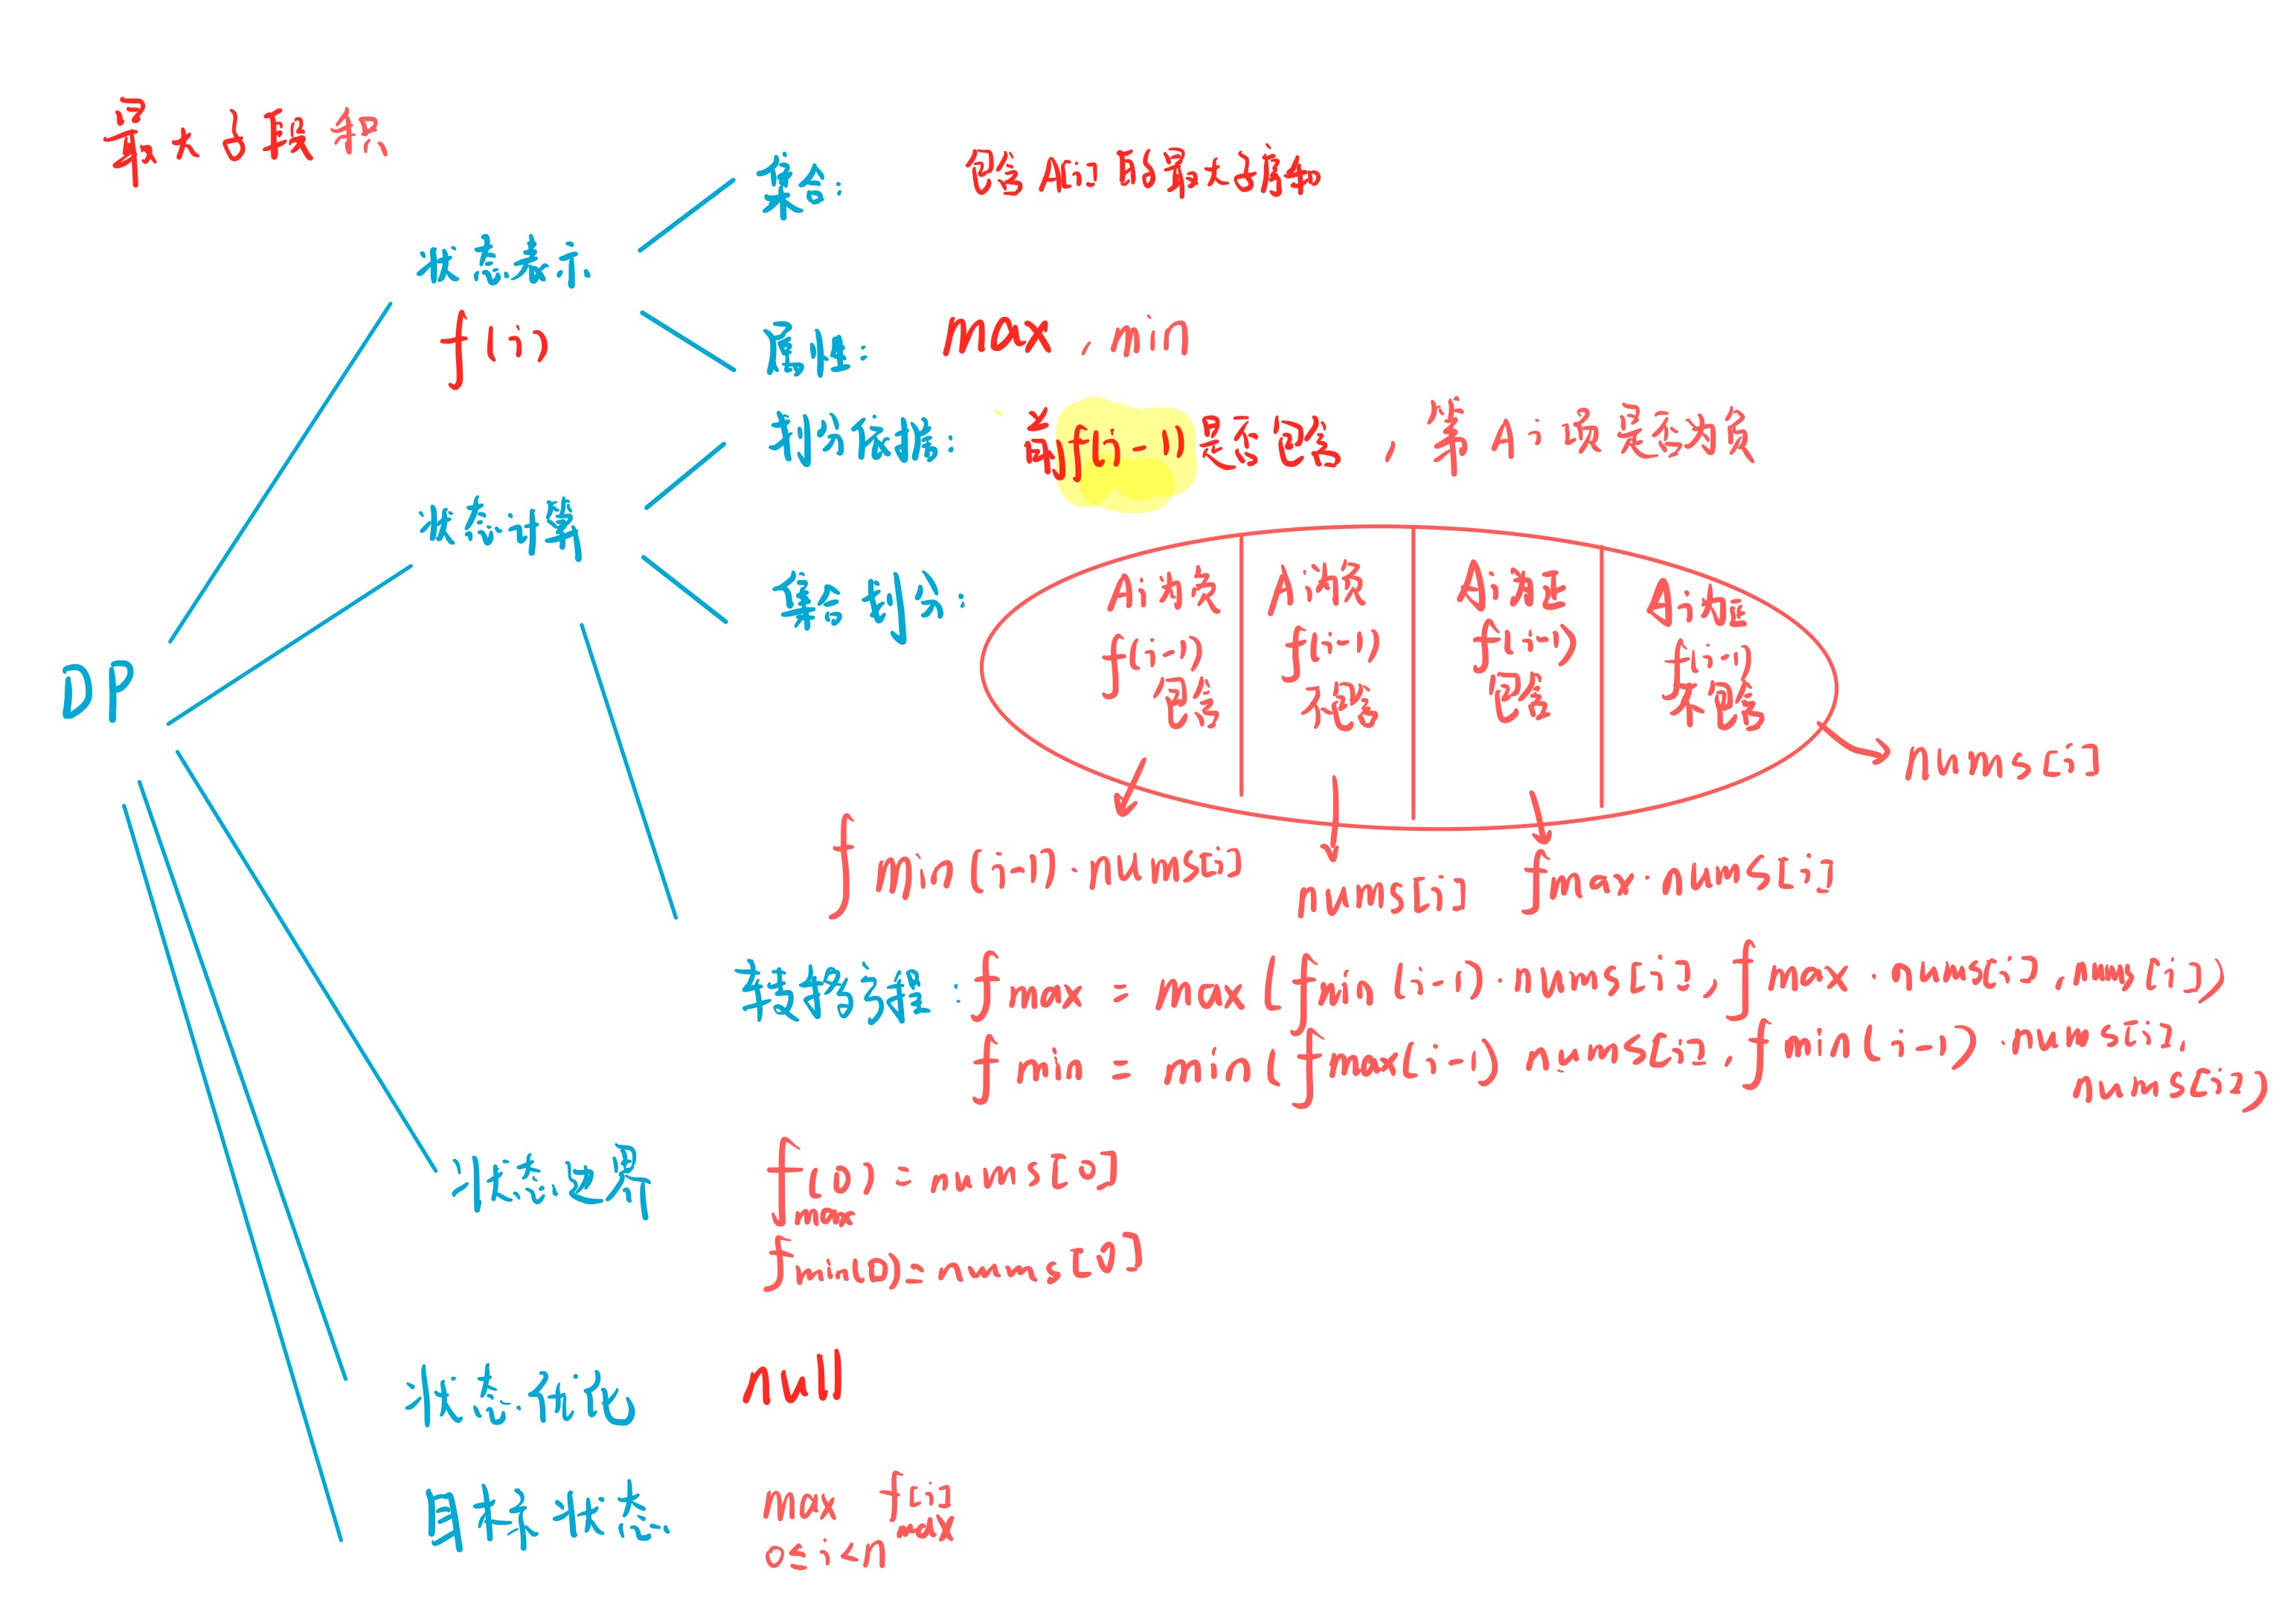 最大子段积
集合: 包含A[i]的最大子序和
状态表示
f(i)
属性: max, min
划分依据: 前f(i-1)是否包含, 第Ai项是否为负
状态计算
集合划分:
Ai为负 f(i-1) 包含
Ai为负 f(i-1) 不包含
Ai为正 f(i-1) 包含
Ai为正 f(i-1) 不包含
DP
nums[i]
fmin(i-1)·nums[i]
nums[i]
fmax·nums[i]
转移方程: fmax = max(fmin(i-1)·nums[i], fmax·nums[i], nums[i])
fmin = min(fmax(i-1) nums[i], fmin(i-1)·nums[i],
nums[i])
状态边界
fmax(0) = nums[0]
fmin(0) = nums[0]
状态优化 null
目标状态 max fmax[i]
0≤i<n